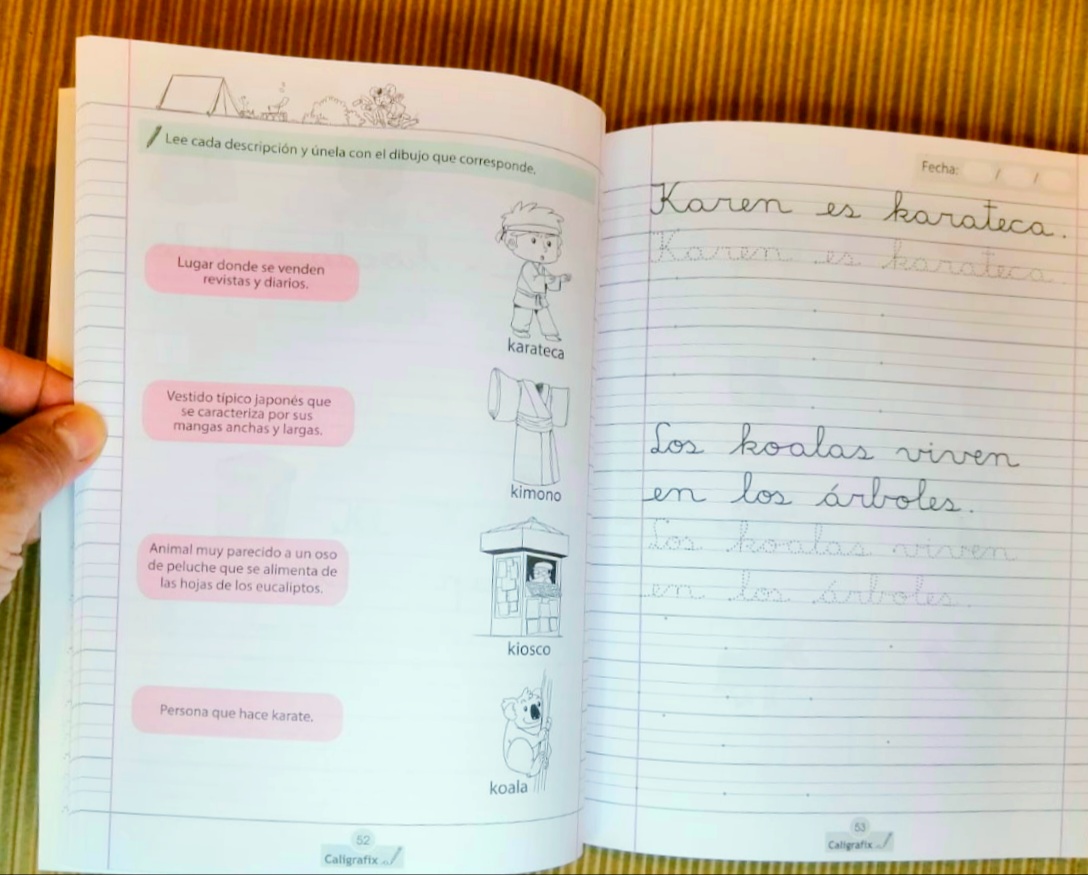 Lee cada descripción y únela con el dibujo que corresponde.
Lugar donde se venden
revistas y diarios.
karateca
Vestido típico japonés que
se caracteriza por sus
mangas anchas y largas.
kimono
Animal muy parecido a un oso
de peluche que se alimenta de
las hojas de los eucaliptos.
kiosco
Persona que hace karate.
koala
52
Caligrafix
Fecha: / /
Karen es karateca.
Karen es karateca.
Los koalas viven
en los árboles.
Los koalas viven
en los árboles.
53
Caligrafix